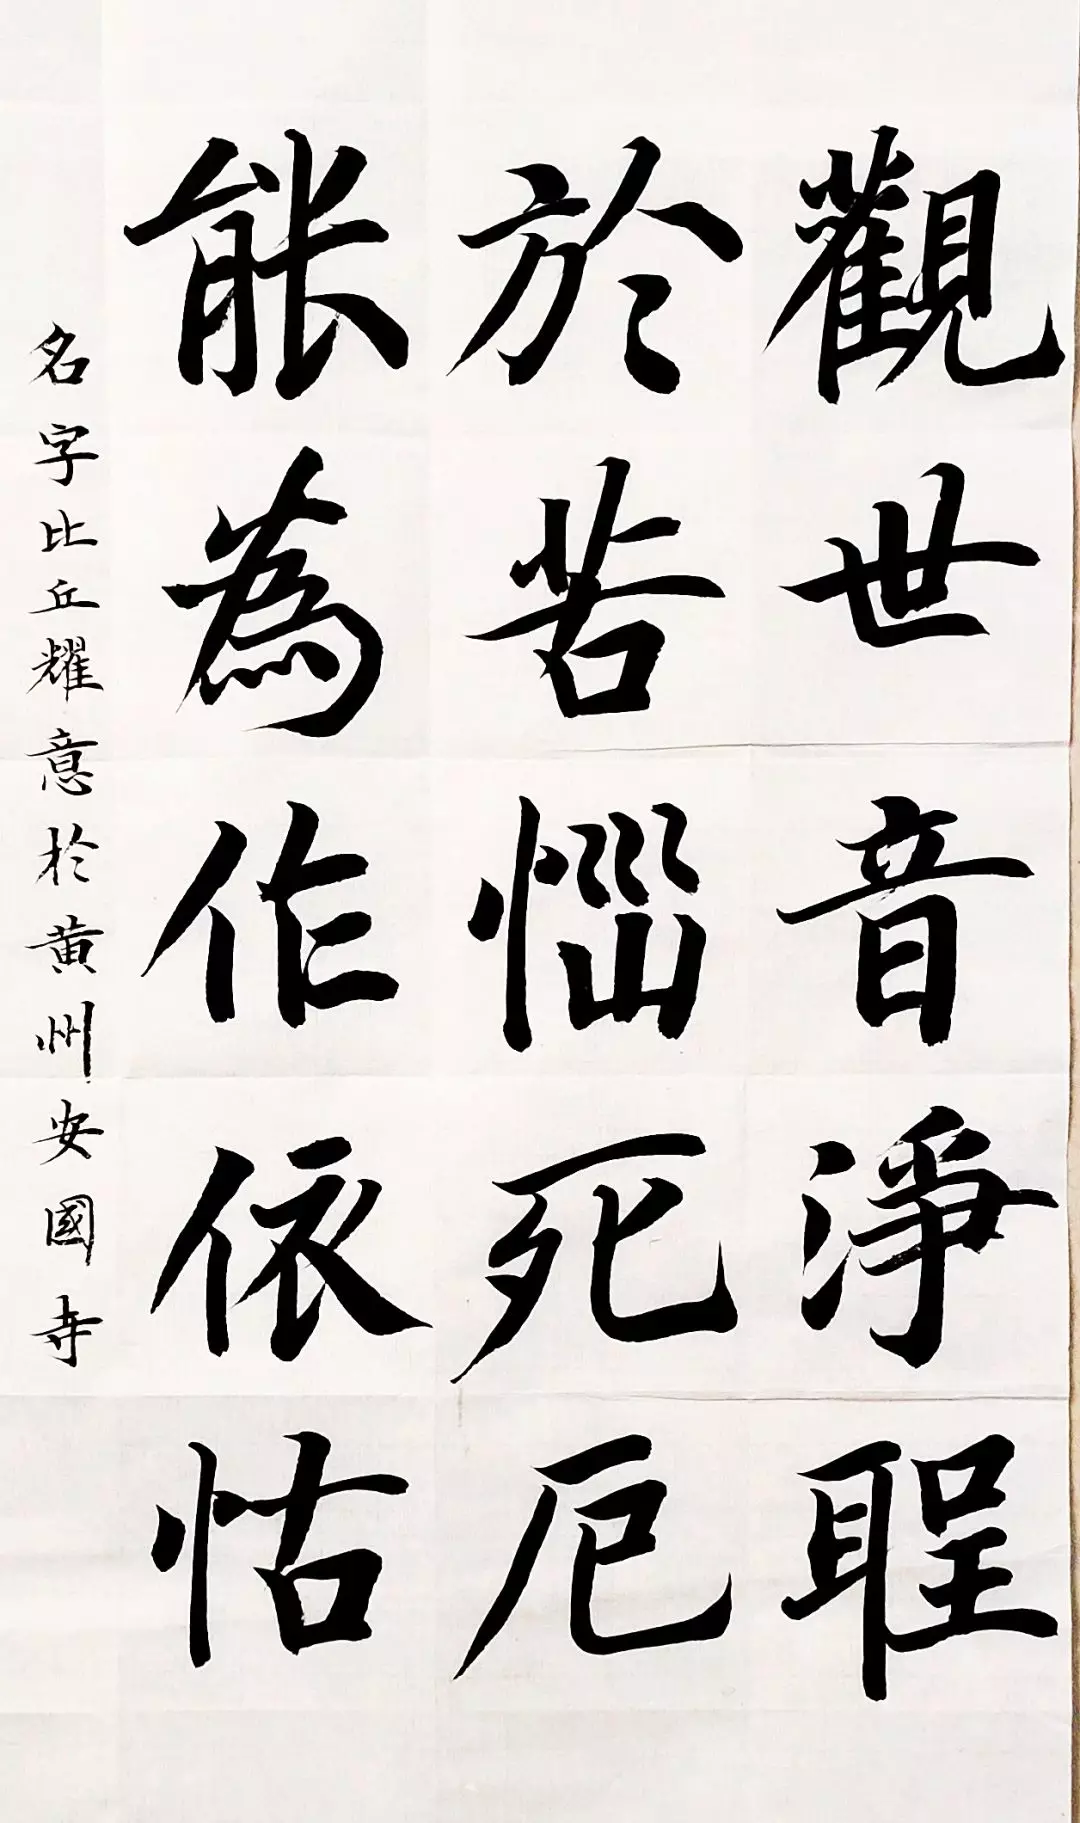 觀世音淨聖
於苦惱死厄
能為作依怙
名字比丘耀意於黄州安國寺